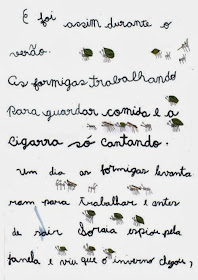 E foi assim durante o
verão.
As formigas trabalhando
para guardar comida e a
cigarra só cantando.
Um dia as formigas levanta
ram para trabalhar e antes
de sair Soraia espiou pela
janela e viu que o inverno chegou,